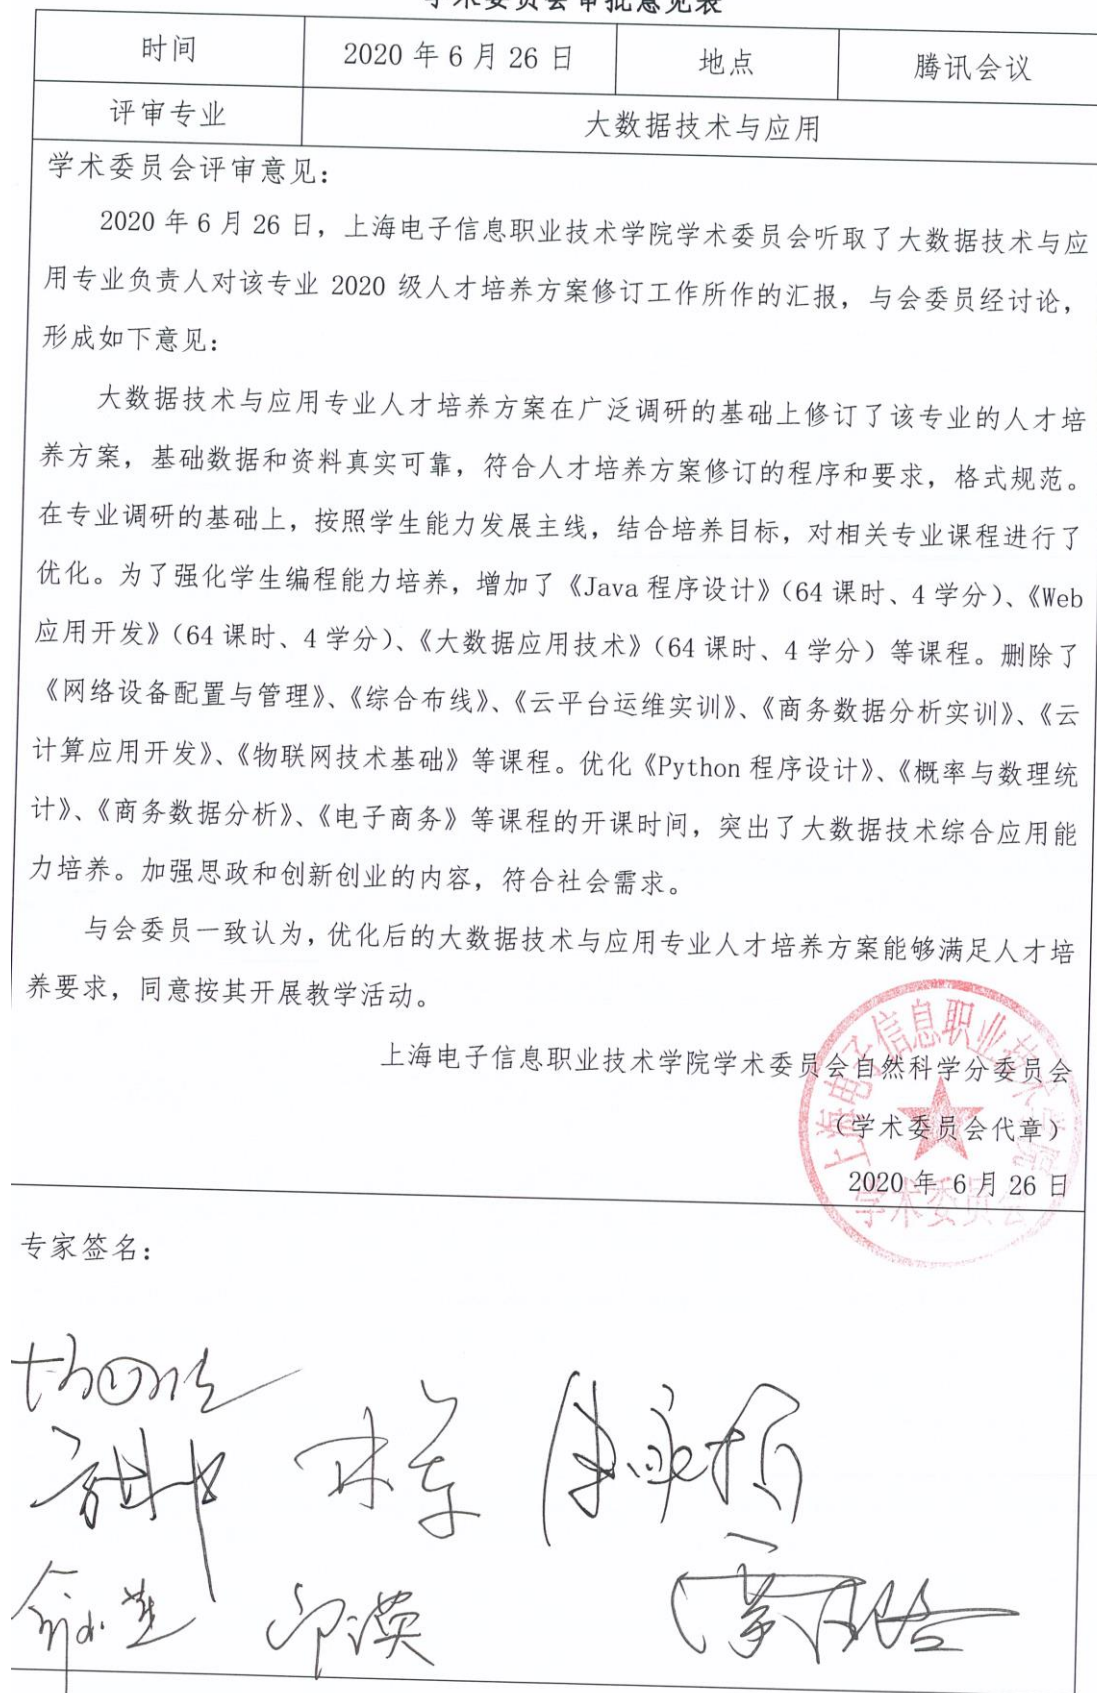 学术委员会审批意见表
时间 2020 年 6 月 26 日 地点 腾讯会议
评审专业 大数据技术与应用
学术委员会评审意见：
2020 年 6 月 26 日，上海电子信息职业技术学院学术委员会听取了大数据技术与应
用专业负责人对该专业 2020 级人才培养方案修订工作所作的汇报，与会委员经讨论，
形成如下意见：
大数据技术与应用专业人才培养方案在广泛调研的基础上修订了该专业的人才培
养方案，基础数据和资料真实可靠，符合人才培养方案修订的程序和要求，格式规范。
在专业调研的基础上，按照学生能力发展主线，结合培养目标，对相关专业课程进行了
优化。为了强化学生编程能力培养，增加了《Java 程序设计》（64 课时、4 学分）、《Web
应用开发》（64 课时、4 学分）、《大数据应用技术》（64 课时、4 学分）等课程。删除了
《网络设备配置与管理》、《综合布线》、《云平台运维实训》、《商务数据分析实训》、《云
计算应用开发》、《物联网技术基础》等课程。优化《Python 程序设计》、《概率与数理统
计》、《商务数据分析》、《电子商务》等课程的开课时间，突出了大数据技术综合应用能
力培养。加强思政和创新创业的内容，符合社会需求。
与会委员一致认为，优化后的大数据技术与应用专业人才培养方案能够满足人才培
养要求，同意按其开展教学活动。
上海电子信息职业技术学院学术委员会自然科学分委员会
（学术委员会代章）
2020 年 6 月 26 日
上海电子信息职业技术学院
学术委员会
专家签名：